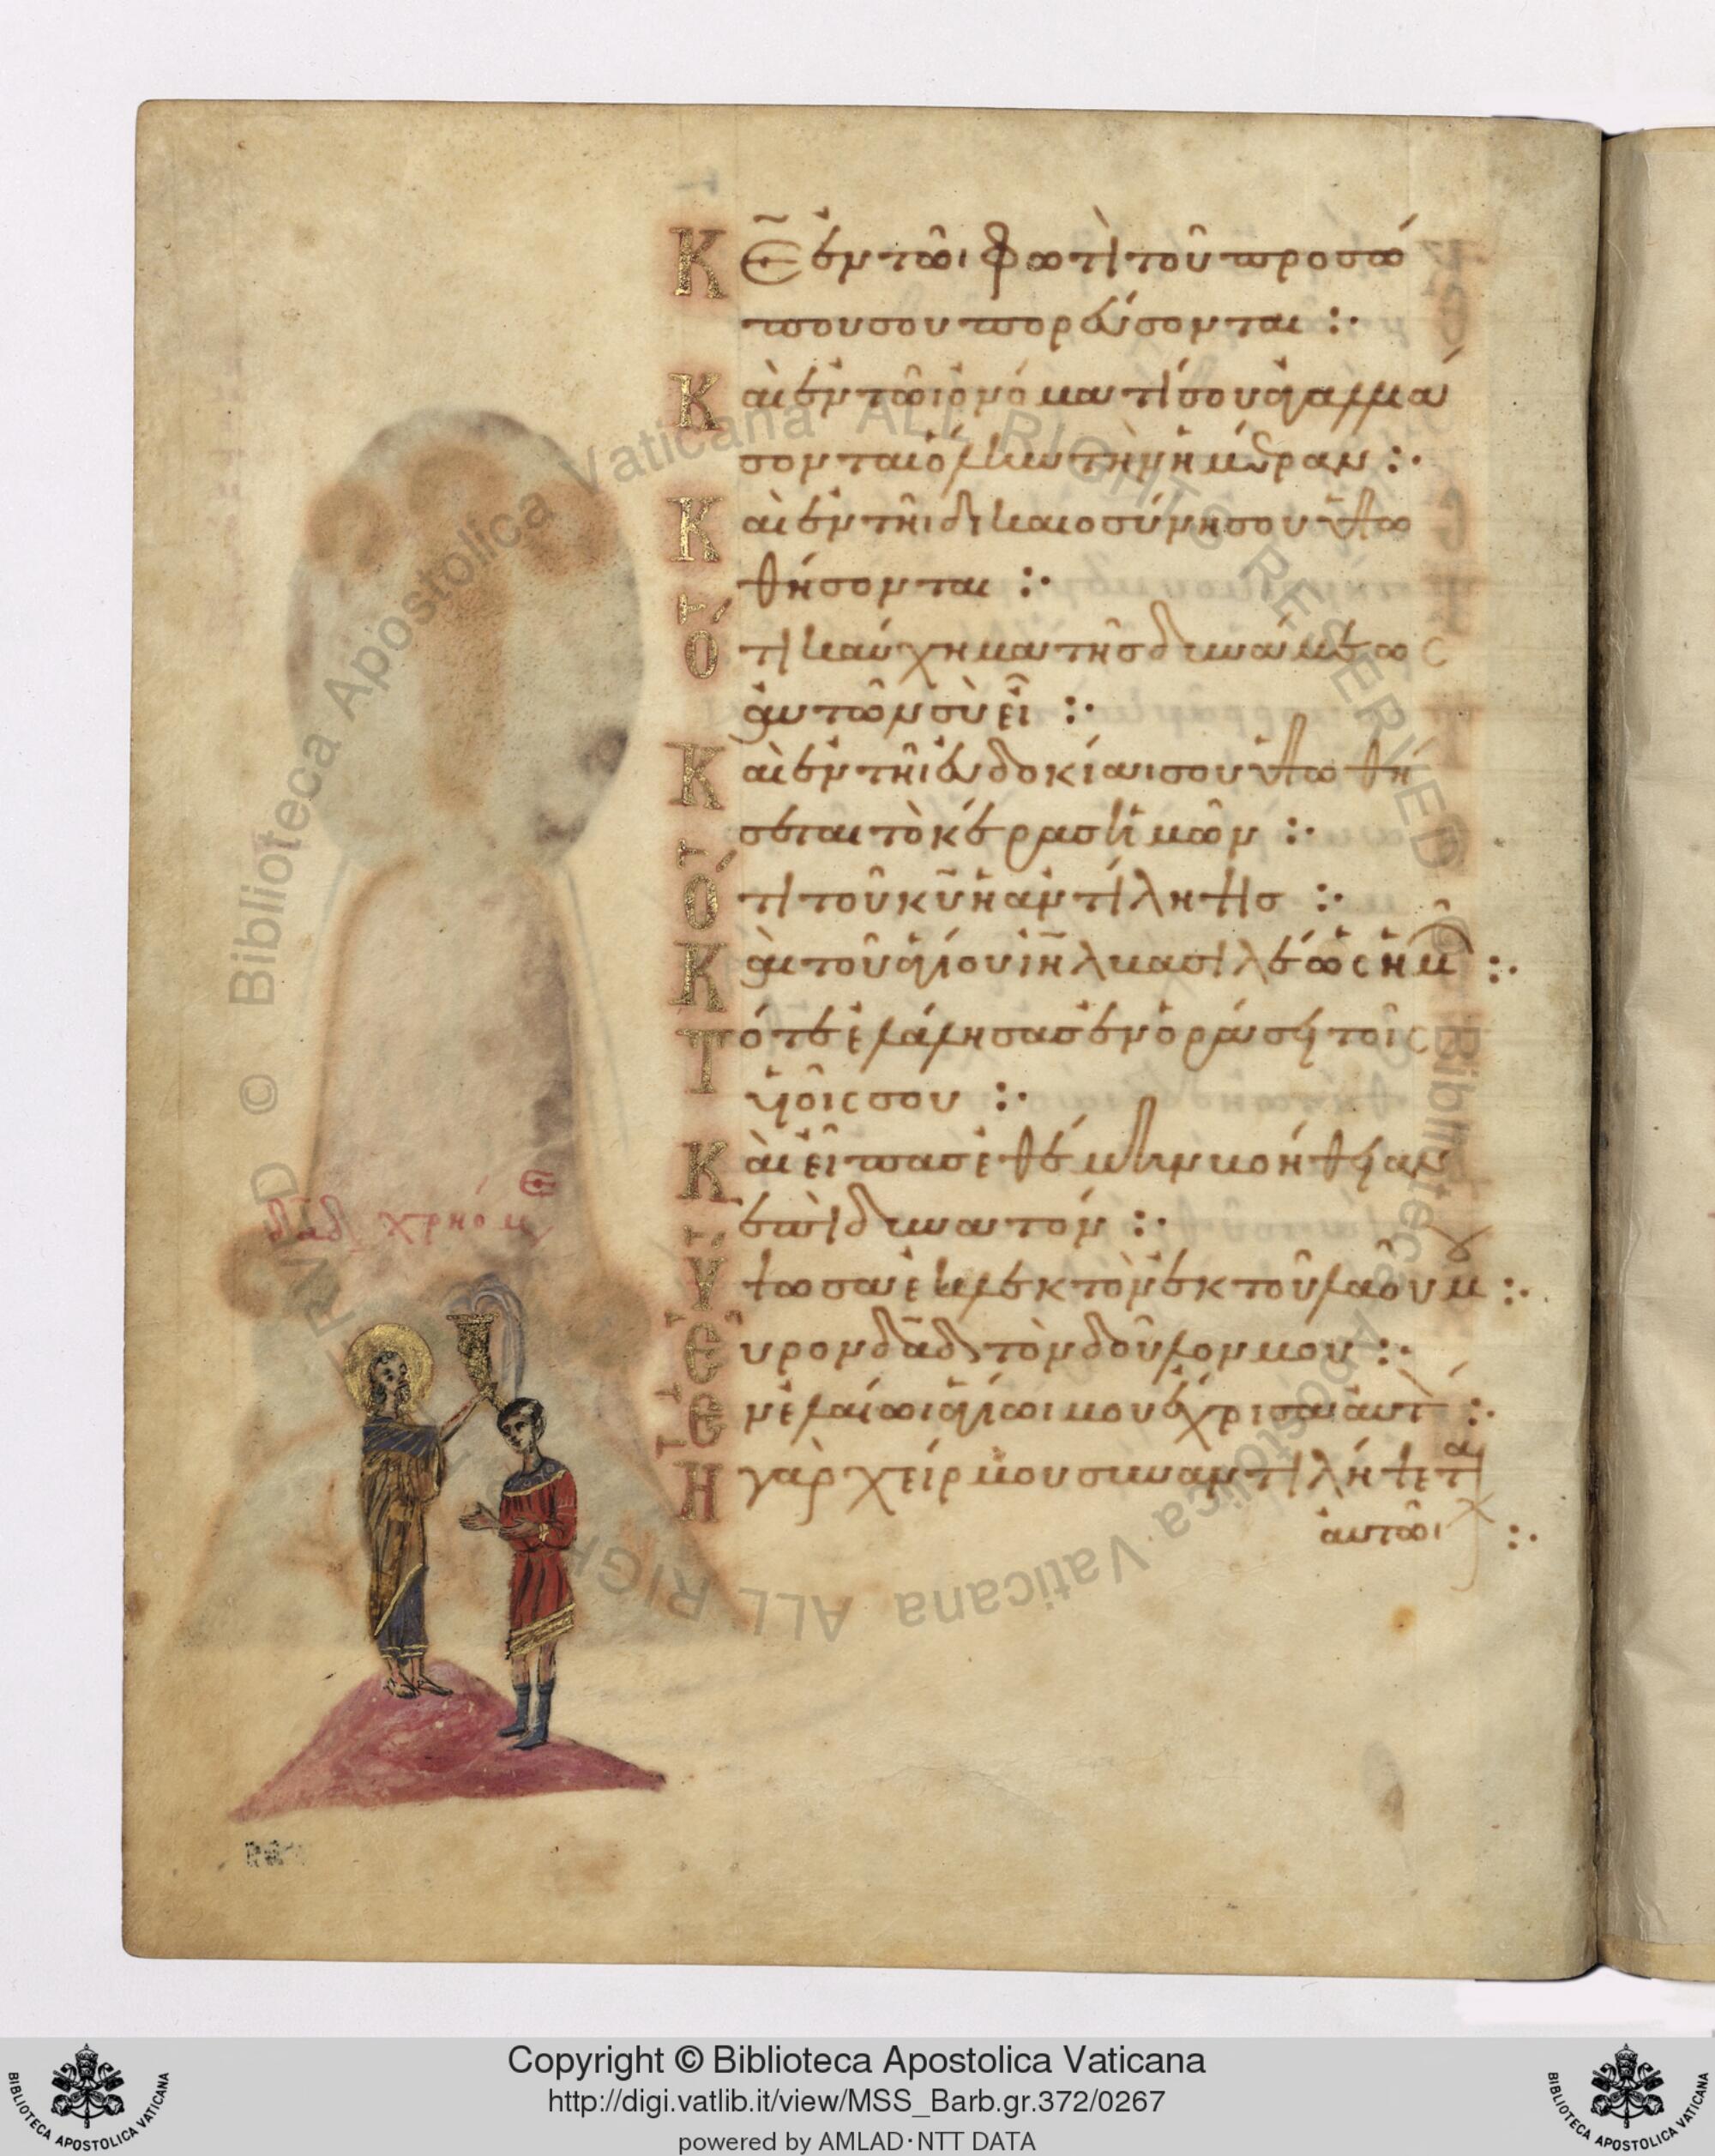 Κ̅Ε̅ ἐν τῶι φωτὶ τοῦ προσώ
που σου πορεύσονται :·
Καὶ ἐν τῶι ὀνόματί σου ἀγαλλιά
σονται ὅλην τὴν ἡμέραν :·
Καὶ ἐν τῆι δικαιοσύνη σου ὑψω
θήσονται :·
Ὅτι καύχημα τῆς δυνάμεως
αὐτῶν σὺ εἶ :·
Καὶ ἐν τῆι εὐδοκίαι σου ὑψωθή
σεται τὸ κέρας ἡμῶν :·
Ὅτι τοῦ κ̅υ̅ ἡ ἀντίληψις :·
Καὶ τοῦ ἁγίου ι̅η̅λ̅ βασιλέως ἡμῶ :·
Τότε ἐλάλησας ἐν ὁράσει τοῖς
υἱοῖς σου :·
Καὶ εἶπας ἐθέμην βοήθειαν
ἐπὶ δυνατόν :·
Ὕψωσα ἐκλεκτὸν ἐκ τοῦ λαοῦ μου :·
Εὗρον δα̅δ̅ τὸν δοῦλον μου :·
Ἐν ἐλαίωι ἁγίωι μου ἔχρισα αὐτ :·
Ἡ γὰρ χείρ μου συναντιλήψεται
αὐτῶι :·
δα̅δ̅ χριόμε
© Biblioteca Apostolica Vaticana ALL RIGHTS RESERVED
© Biblioteca Apostolica Vaticana ALL RIGHTS RESERVED
Copyright © Biblioteca Apostolica Vaticana
http://digi.vatlib.it/view/MSS_Barb.gr.372/0267
powered by AMLAD·NTT DATA
BIBLIOTECA APOSTOLICA VATICANA
BIBLIOTECA APOSTOLICA VATICANA